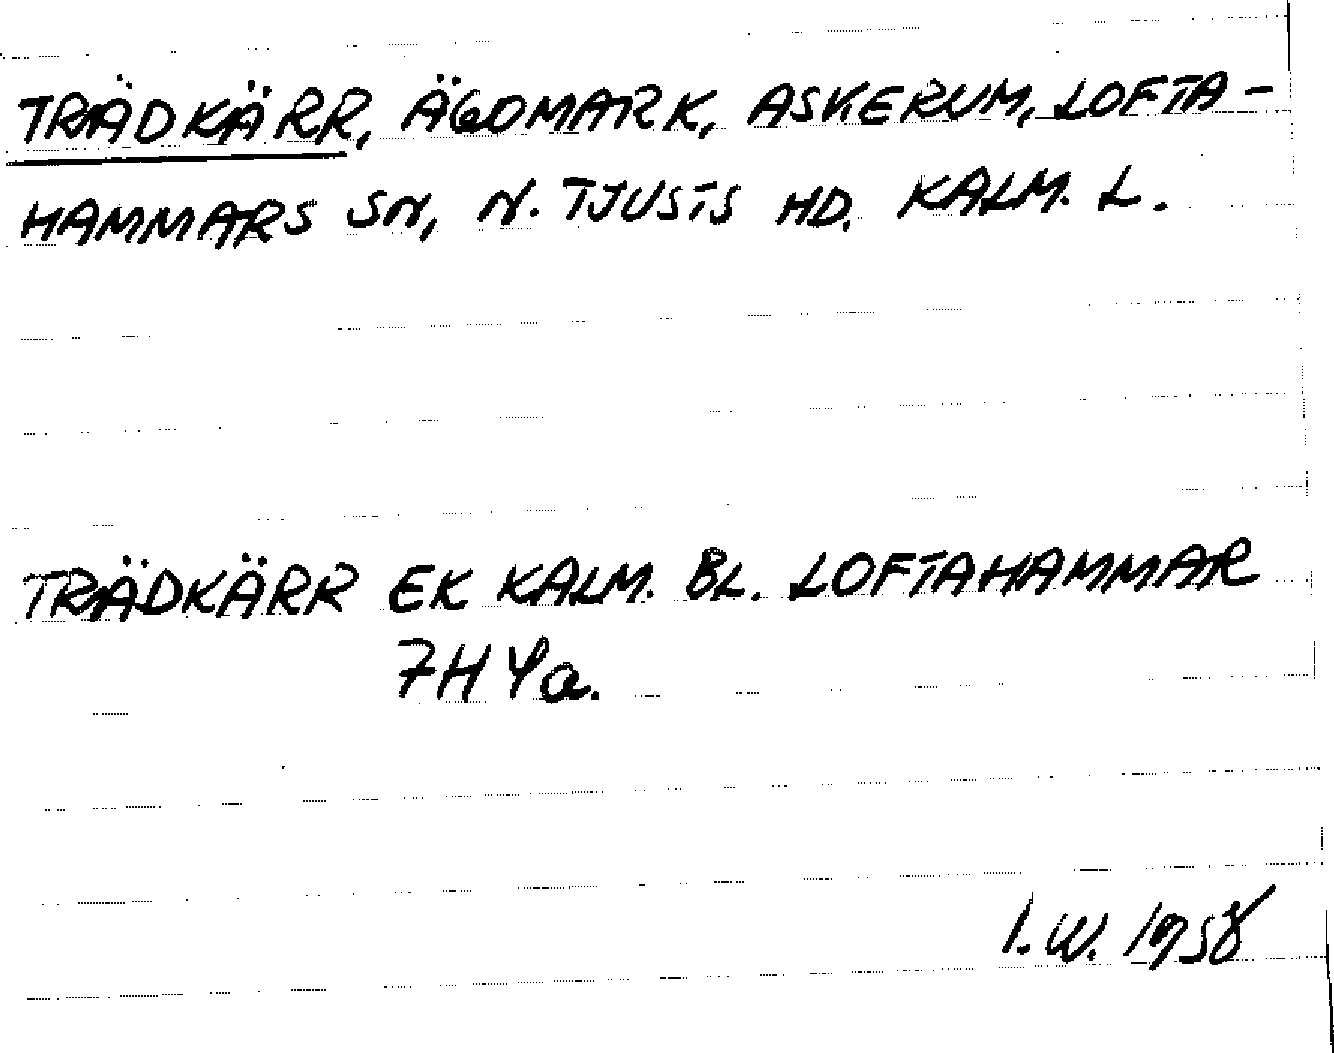 TRÄDKÄRR, ÄGOMARK, ASKERUM, LOFTA-
HAMMARS SN, N. TJUSTS HD. KALM. L.
TRÄDKÄRR EK KALM. BL. LOFTAHAMMAR
7H 4a.
I.W. 1958